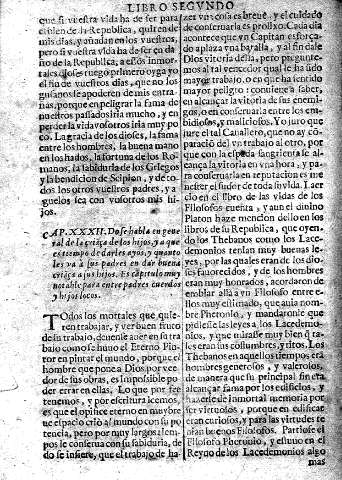 LIBRO SEGVNDO
que si vuestra vida ha de ser para
el bien de la Republica, quiten de
mis dias, y añadan en los vuestros,
pero si vuestra vida ha de ser en da-
ño de la Republica, a ellos inmor-
tales dioses ruego primero oyga yo
el fin de vuestros dias, que no los
gusanos se apoderen de mis entra-
ñas, porque en peligrar la fama de
nuestros passados iria mucho, y en
perder la vida vosotros iria muy po
co. La gracia de los dioses, la fama
entre los hombres, la buena mano
en los hados, la fortuna de los Ro-
manos, la sabiduria de los Griegos
y la bendicion de Scipion, y de to-
dos los otros vuestros padres, y a-
guelos sea con vosotros mis hi-
jos.
CAP. XXXII. Do se habla en gene
ral de la criãça de los hijos, y a que
es tiempo de darles ayos, y quanto
les va à sus padres en dar buena
criãça a sus hijos. Es capitulo muy
notable para entre padres cuerdos
y hijos locos.
TOdos los mortales que quie-
ren trabajar, y ver buen fruto
de su trabajo, deuen se auer en su tra
bajo como se huuo el Eterno Pin-
tor en pintar el mundo, porque el
hombre que pone à Dios por vee-
dor de sus obras, es impossible po
der errar en ellas. Lo que por fee
tenemos, y por escritura leemos,
es que el opifice eterno en muy bre
ue espacio crió al mundo con su po
tencia, pero por muy largos tiem-
pos le conserua con su sabiduria, de
do se insiere, que el trabajo de ha-
zer vna cosa es breue, y el cuidado
de conseruarla es prolixo. Cada dia
acontece que vn Capitan esforça-
do aplaza vna batalla, y al fin dale
Dios vitoria della, pero pregunte-
mos al tal vencedor qual le ha sido
mayor trabajo, o en que ha sentido
mayor peligro: conuiene a saber,
en alcançar la vitoria de sus enemi-
gos, o en conseruarla entre los em-
bidiosos, y maliciosos. Yo juro que
jure el tal Cauallero, que no ay cõ-
paraciõ de vn trabajo al otro, por
que con la espada sangrienta se al-
cança la vitoria en vna hora, y pa-
ra conseruarla en reputacion es me
nester el sudor de toda su vida. Laer
cio en el libro de las vidas de los
Filosofos cuenta, y aun el diuino
Platon haze mencion dello en los
libros de su Republica, que oyen-
do los Thebanos como los Lace-
demonios tenian muy buenas le-
yes, por las quales eran de los dio-
ses fauorecidos, y de los hombres
eran muy honrados, acordaron de
embiar allà à vn Filosofo entre e-
llos muy estimado, que auia nom-
bre Pheronio, y mandaronle que
pidiesse las leyes a los Lacedemo-
nios, y que mirasse muy bien q̃ ta-
les eran sus costumbres, y ritos. Los
Thebanos en aquellos tiempos erã
hombres generosos, y valerosos,
de manera que su principal fin de
alcançar fama por los edificios, y
hazerse de inmortal memoria por
ser virtuosos, porque en edificar
eran curiosos, y para las virtudes te
nian buenos Filosofos. Partiose el
Filosofo Pheronio, y estuuo en el
Reyno de los Lacedemonios algo
mas